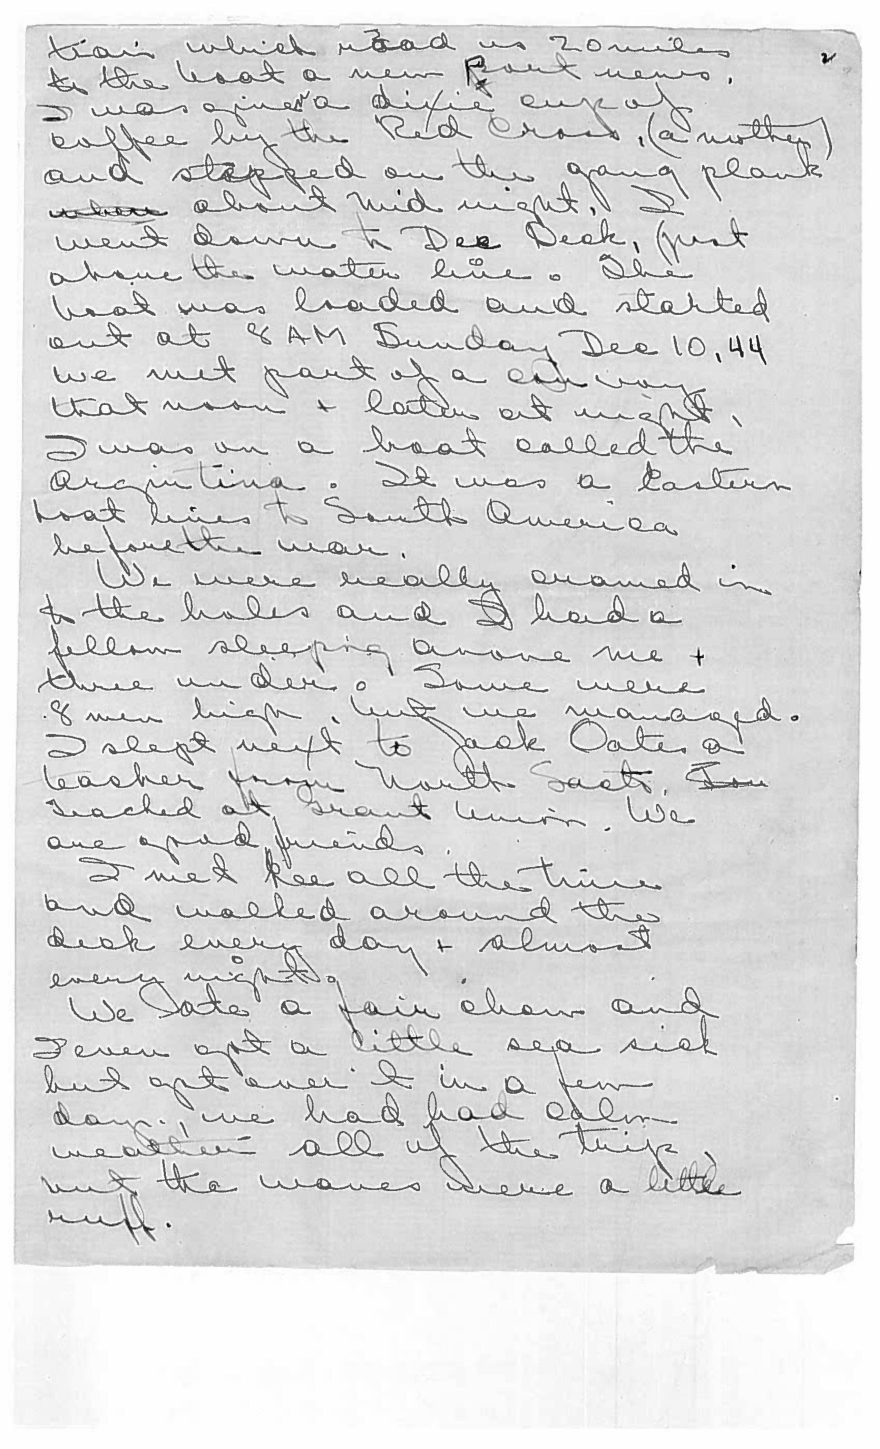 2
train which road us 20 miles
to the boat a new Port news.
I was given a dixie cup of
coffee by the Red Cross, (a mother)
and stepped on the gang plank
when about mid night. I
went down to Dee Deck, (just
above the water line. The
boat was loaded and started
out at 8 AM Sunday Dec 10, 44
we met part of a convoy
that noon + later at night.
I was on a boat called the
Argintina. It was a Eastern
boat lines to South America
before the war.
We were really cramed in
to the holes and I had a
fellow sleeping above me +
three under. Some were
8 men high, but we managed.
I slept next to Jack Oates a
teacher from North Sacto.
Teached at Grant Union. We
are good friends.
I met Kee all the time
and walked around the
deck every day + almost
every night.
We ate a fair chow and
I even got a little sea sick
but got over it in a few
days. we had had calm
weather all of the trip,
but the waves were a little
ruff.